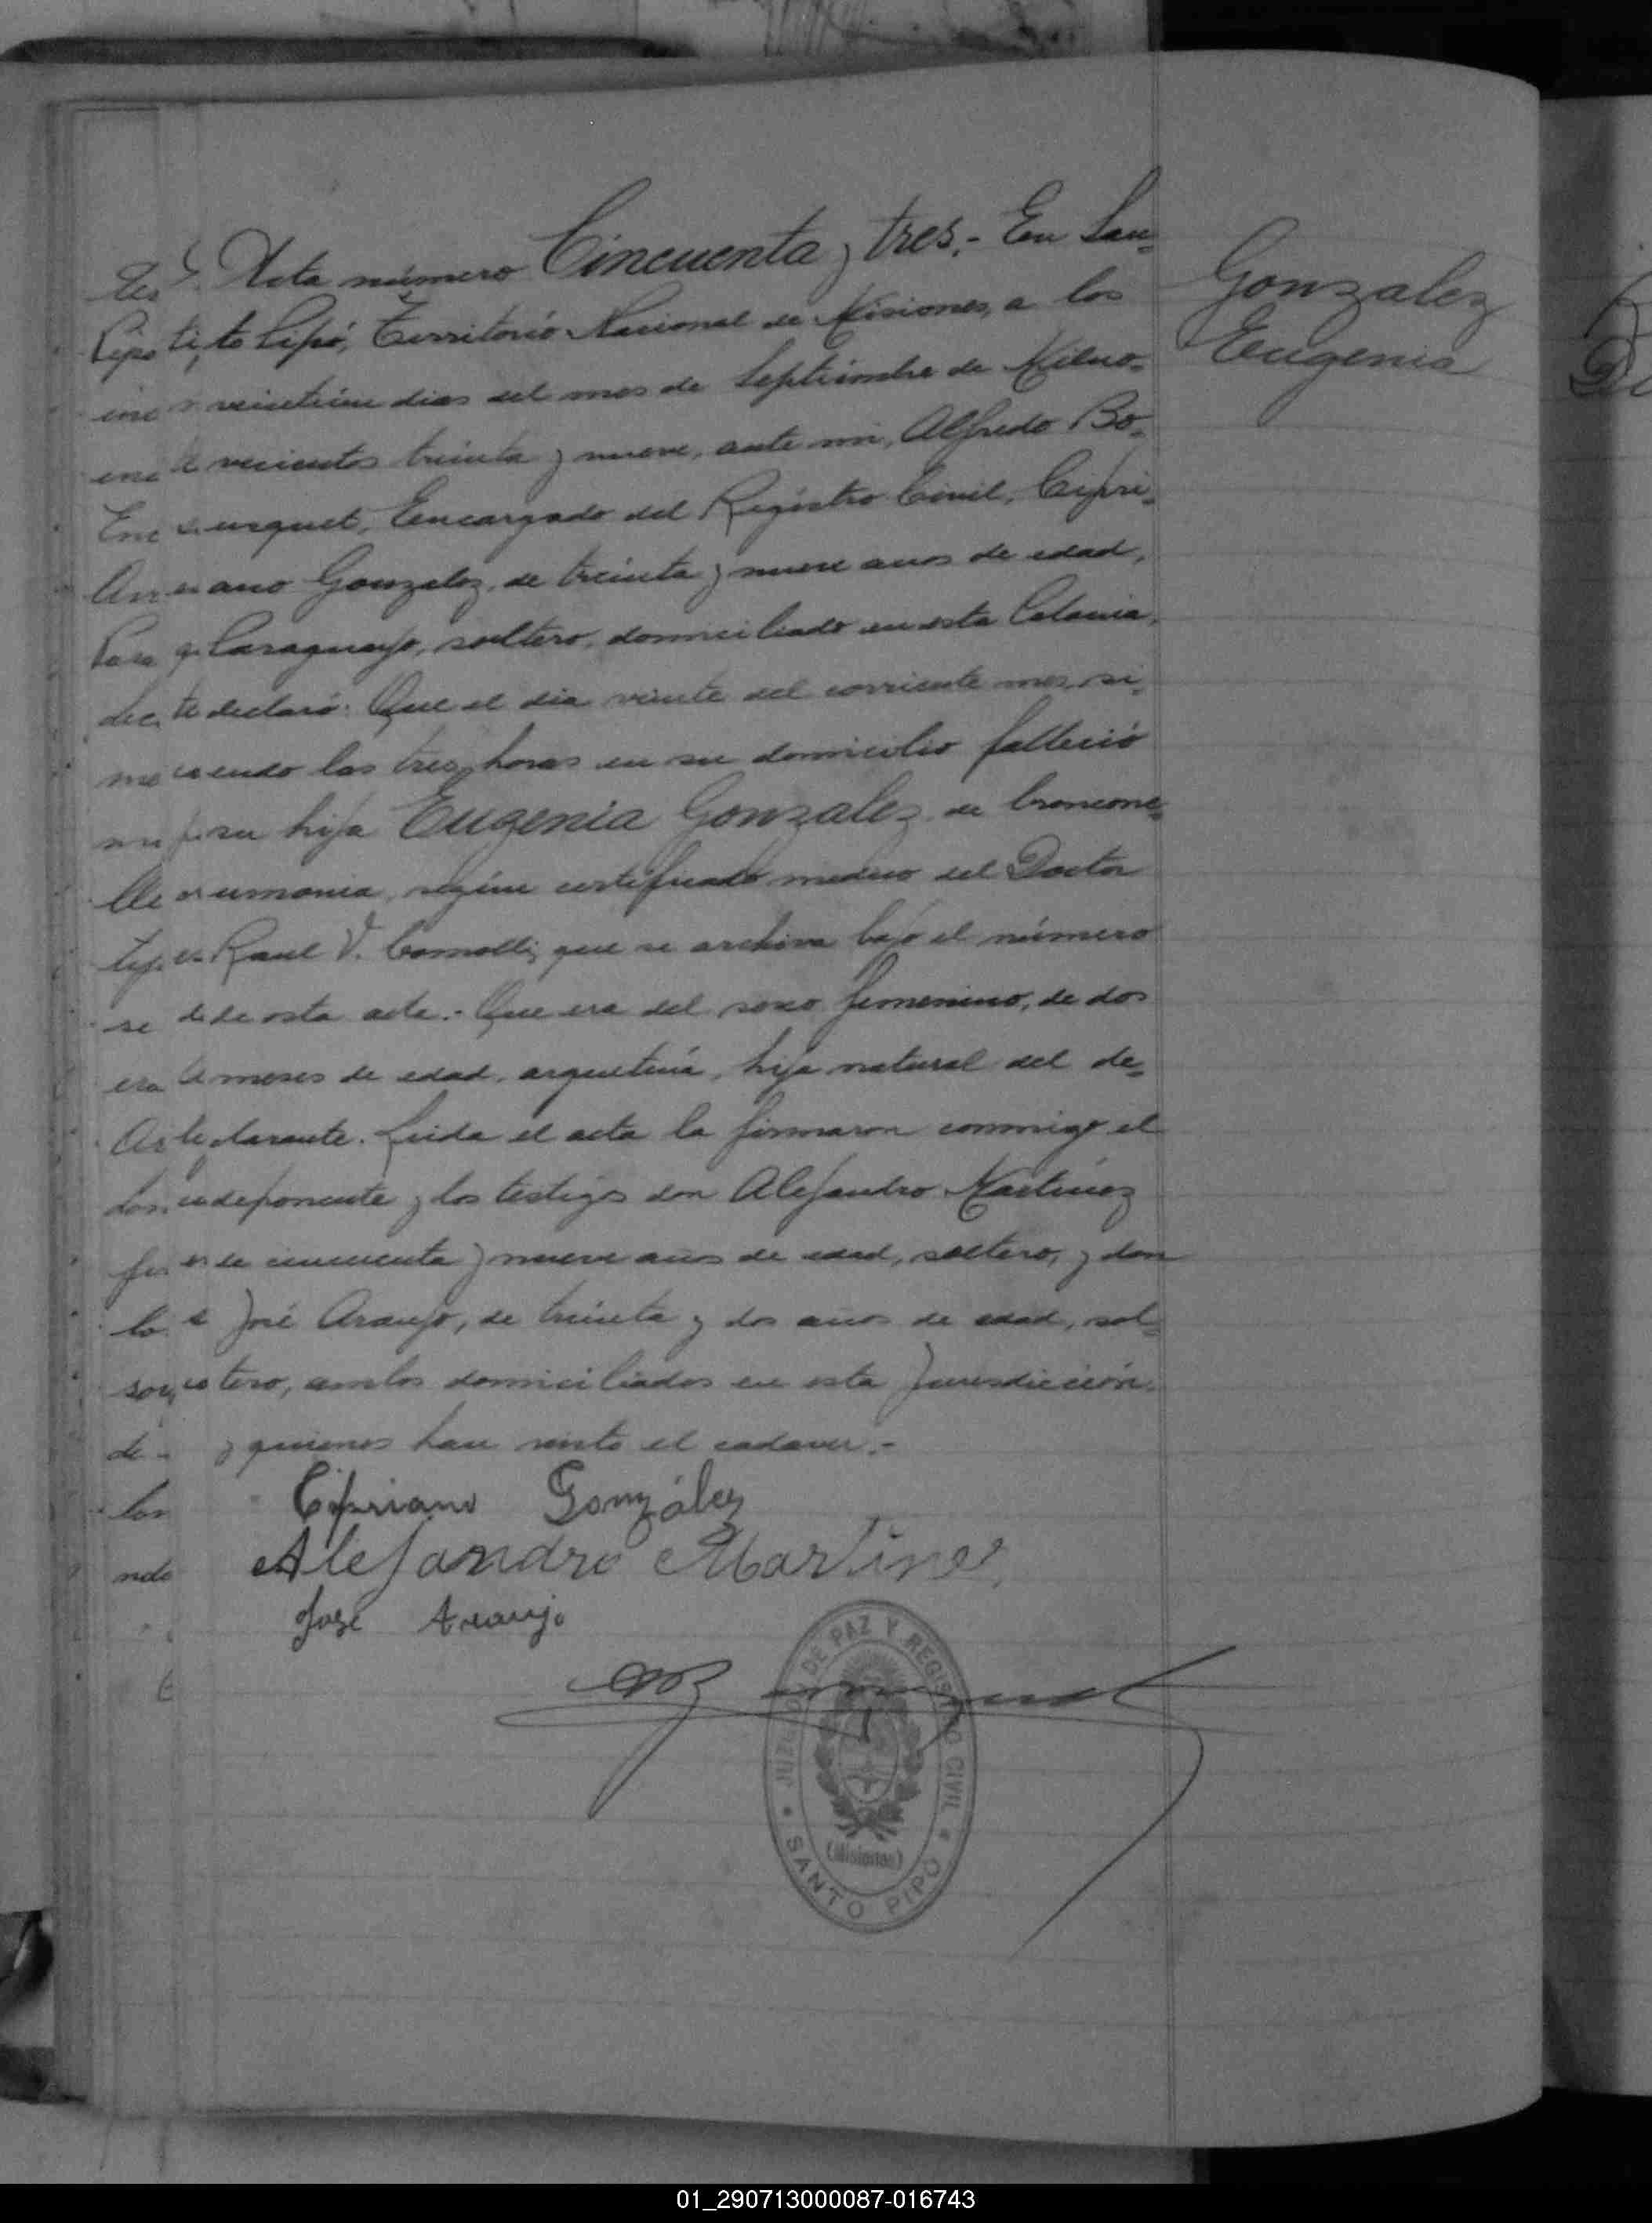 Acta número Cincuenta y tres.- En San-
to Pipó, Territorio Nacional de Misiones, a los
veintiún dias del mes de Septiembre de Milno-
vecientos treinta y nueve, ante mi, Alfredo Bo-
urquet, Encargado del Registro Civil, Cipri-
ano Gonzalez, de treinta y nueve anos de edad,
Paraguayo, soltero, domiciliado en esta Colonia,
declaró: Que el dia veinte del corriente mes, si-
endo las tres horas en su domicilio falleció
su hija Eugenia Gonzalez de broncone-
umonia, según certificado medico del Doctor
Raul V. Comolli, que se archiva bajo el número
de esta acta.- Que era del sexo femenino, de dos
meses de edad, argentina, hija natural del de-
clarante. Leida el acta la firmaron conmigo el
deponente y los testigos don Alejandro Martinez
de cincuenta y nueve años de edad, soltero, y don
José Araujo, de treinta y dos años de edad, sol-
tero, ambos domiciliados en esta Jurisdicción
y quienes han visto el cadaver.-
Cipriano González
Alejandro Martinez
José Araujo
Gonzalez
Eugenia
JUZGADO DE PAZ Y REGISTRO CIVIL
(Misiones)
SANTO PIPÓ
01_290713000087-016743